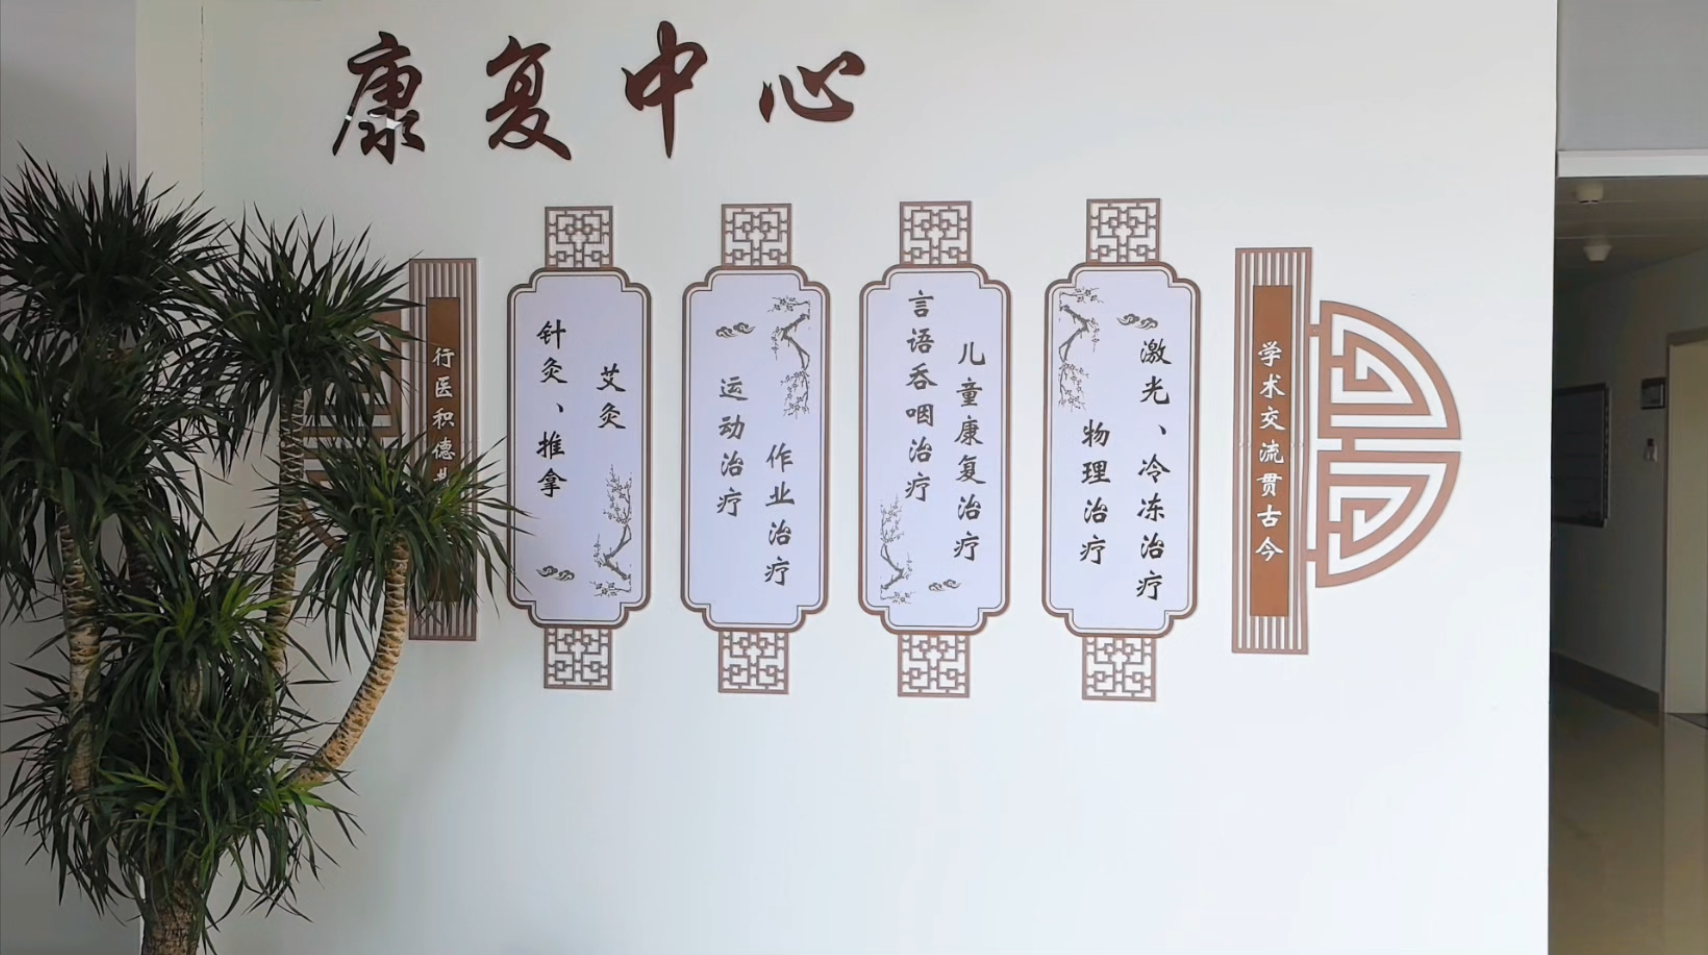 康复中心
行医积德
针灸、推拿
艾灸
运动治疗
作业治疗
言语吞咽治疗
儿童康复治疗
物理治疗
激光、冷冻治疗
学术交流贯古今